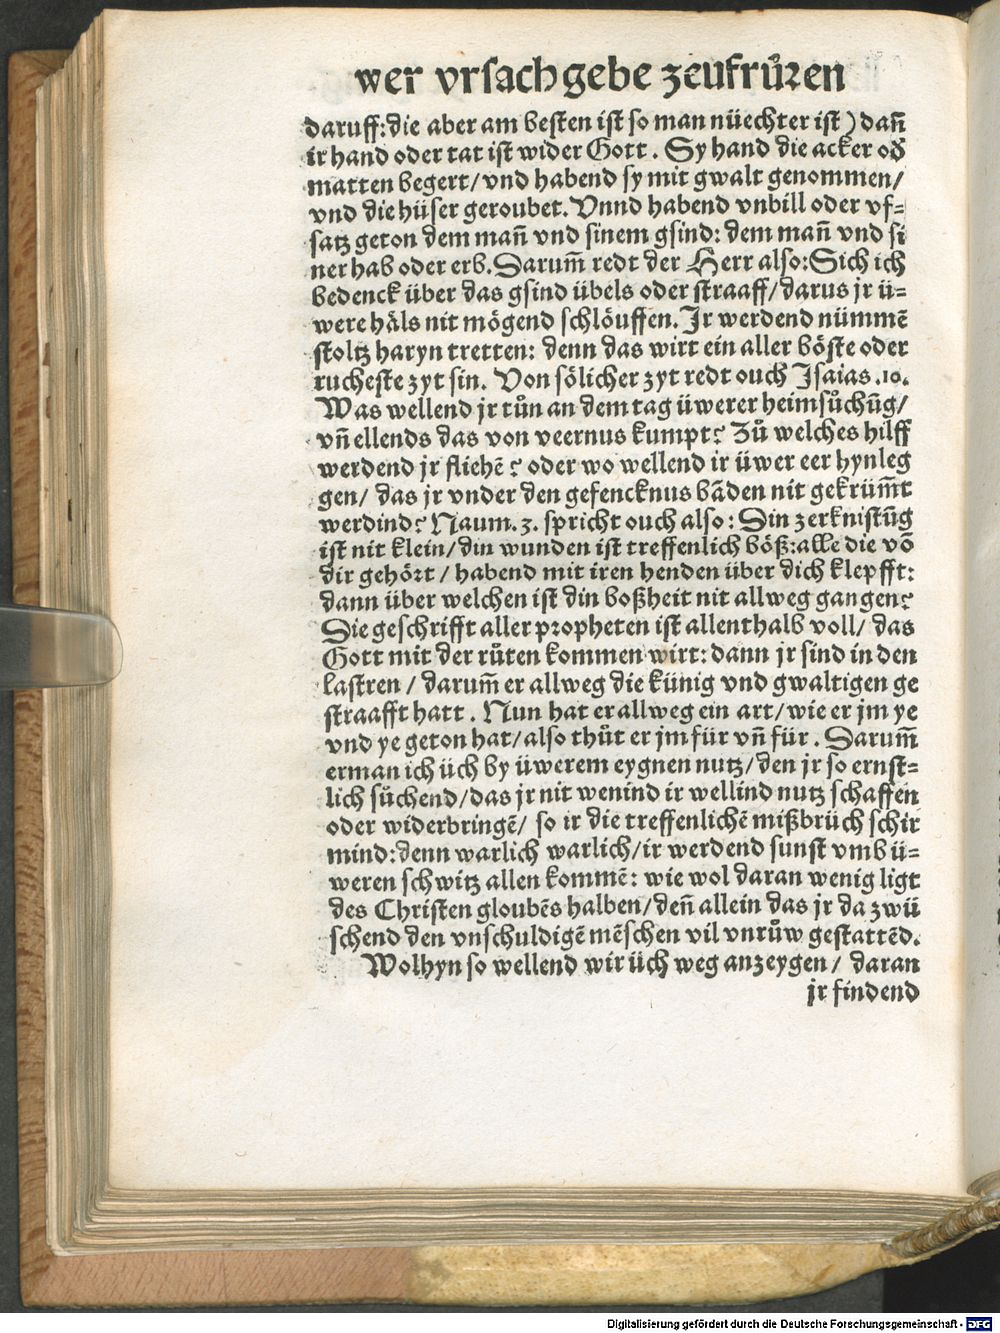 wer vrsach gebe zeufrůren
daruff: die aber am besten ist so man nüechter ist) dañ
ir hand oder tat ist wider Gott. Sy hand die acker oď
matten begert/ vnd habend sy mit gwalt genommen/
vnd die hüser geroubet. Vnnd habend vnbill oder vf-
satz geton dem mañ vnd sinem gsind: dem mañ vnd si
ner hab oder erb. Darum̃ redt der Herr also: Sich ich
bedenck über das gsind übels oder straaff/ darus jr ü-
were häls nit mögend schlöuffen. Jr werdend nümmē
stoltz haryn tretten: denn das wirt ein aller böste oder
rucheste zyt sin. Von sölicher zyt redt ouch Isaias .10.
Was wellend jr tůn an dem tag üwerer heimsůchũg/
vñ ellends das von veernus kumpt? Zů welches hilff
werdend jr fliehē? oder wo wellend ir üwer eer hynleg
gen/ das jr vnder den gefencknus bãden nit gekrüm̃t
werdind? Naum. 3. spricht ouch also: Din zerknistũg
ist nit klein/ din wunden ist treffenlich böß: alle die vō
dir gehört/ habend mit iren henden über dich klepfft:
dann über welchen ist din boßheit nit allweg gangen?
Die geschrifft aller propheten ist allenthalb voll/ das
Gott mit der růten kommen wirt: dann jr sind in den
lastren/ darum̃ er allweg die künig vnd gwaltigen ge
straafft hatt. Nun hat er allweg ein art/ wie er jm ye
vnd ye geton hat/ also thůt er jm für vñ für. Darum̃
erman ich üch by üwerem eygnen nutz/ den jr so ernst-
lich sůchend/ das jr nit wenind ir wellind nutz schaffen
oder widerbringē/ so ir die treffenlichē mißbrüch schir
mind: denn warlich warlich/ ir werdend sunst vmb ü-
weren schwitz allen kommē: wie wol daran wenig ligt
des Christen gloubēs halben/ deñ allein das jr da zwü
schend den vnschuldigē mēschen vil vnrůw gestattēd.
Wolhyn so wellend wir üch weg anzeygen/ daran
jr findend
Digitalisierung gefördert durch die Deutsche Forschungsgemeinschaft - DFG